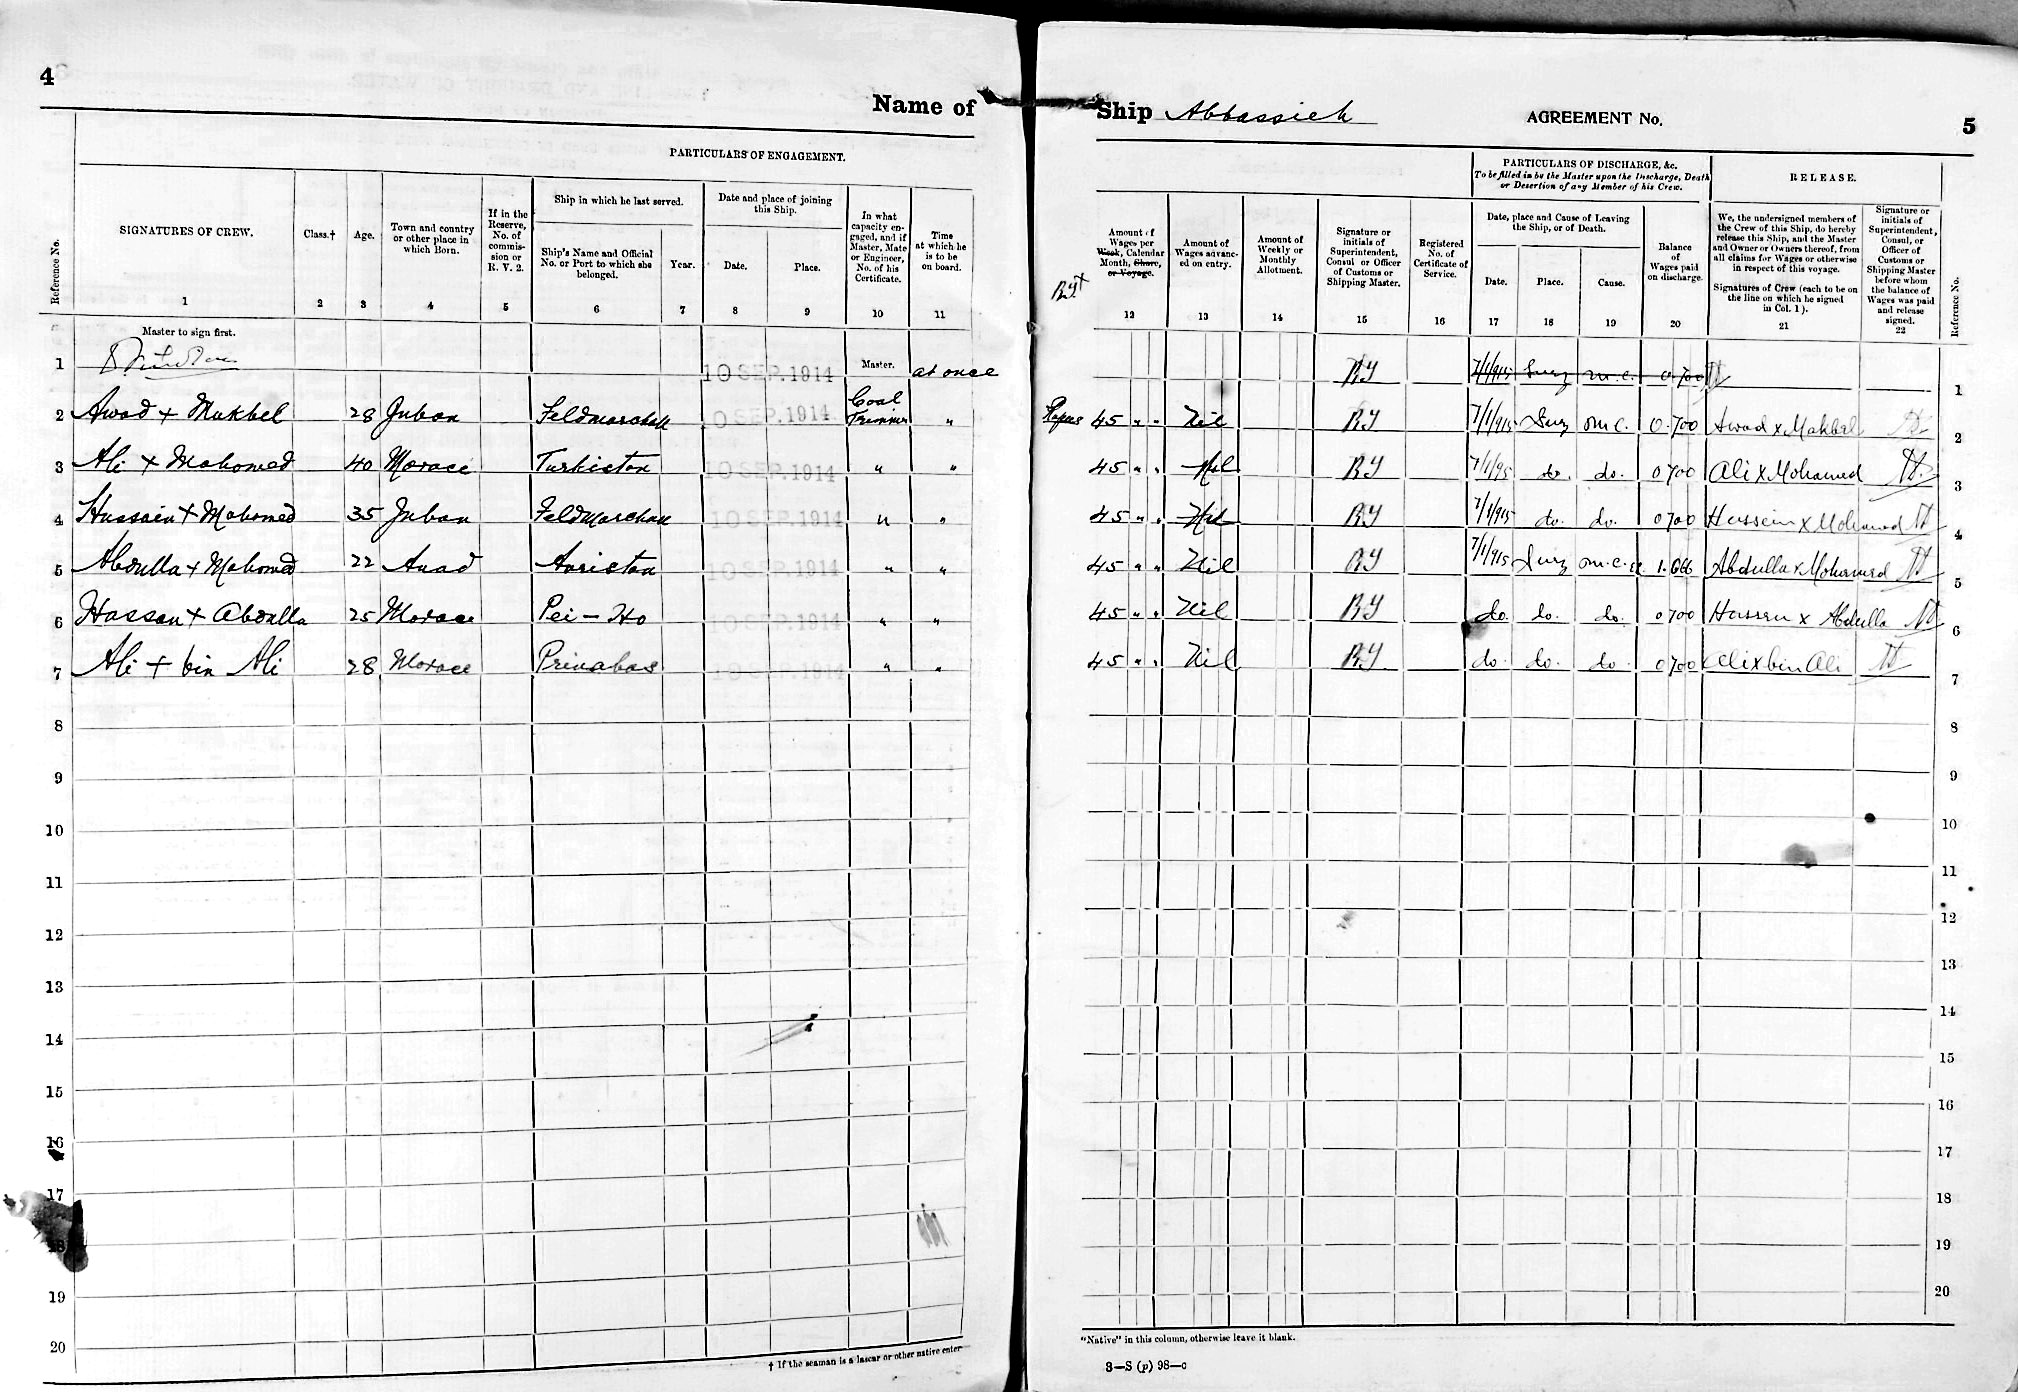 4
Name of
PARTICULARS OF ENGAGEMENT.
Reference No.
SIGNATURES OF CREW.
1
Class.†
2
Age.
3
Town and country
or other place in
which Born.
4
If in the
Reserve,
No. of
commis-
sion or
R. V. 2.
5
Ship in which he last served.
Ship's Name and Official
No. or Port to which she
belonged.
6
Year.
7
Date and place of joining
this Ship.
Date.
8
Place.
9
In what
capacity en-
gaged, and if
Master, Mate
or Engineer,
No. of his
Certificate.
10
Time
at which he
is to be
on board.
11
Master to sign first.
1 10 SEP. 1914 Master. at once
2 Awad + Mukbel 28 Juban Feldmarchall 10 SEP. 1914 Coal Trimmer "
3 Ali + Mohomed 40 Morace Turkistan 10 SEP. 1914 " "
4 Hussain + Mohomed 35 Juban Feldmarchall 10 SEP. 1914 " "
5 Abdulla + Mohomed 22 Awad Avristan 10 SEP. 1914 " "
6 Hassan + Abdulla 25 Morace Pei-Ho 10 SEP. 1914 " "
7 Ali + bin Ali 28 Morace Prinabas 10 SEP. 1914 " "
8
9
10
11
12
13
14
15
16
17
18
19
20
† If the seaman is a lascar or other native enter
Ship Abbassieh AGREEMENT No. 5
PARTICULARS OF DISCHARGE, &c.
To be filled in by the Master upon the Discharge, Death
or Desertion of any Member of his Crew.
RELEASE.
Amount of
Wages per
Week, Calendar
Month, Share,
or Voyage.
12
Amount of
Wages advanc-
ed on entry.
13
Amount of
Weekly or
Monthly
Allotment.
14
Signature or
initials of
Superintendent,
Consul or Officer
of Customs or
Shipping Master.
15
Registered
No. of
Certificate of
Service.
16
Date, place and Cause of Leaving
the Ship, or of Death.
Date.
17
Place.
18
Cause.
19
Balance
of
Wages paid
on discharge.
20
We, the undersigned members of
the Crew of this Ship, do hereby
release this Ship, and the Master
and Owner or Owners thereof, from
all claims for Wages or otherwise
in respect of this voyage.
Signatures of Crew (each to be on
the line on which he signed
in Col. 1).
21
Signature or
initials of
Superintendent,
Consul, or
Officer of
Customs or
Shipping Master
before whom
the balance of
Wages was paid
and release
signed.
22
Reference No.
RY
RY 7/1/915 Suez m.c. 0.700 1
Rupees 45 " " Nil RY 7/1/915 Suez m.c. 0.700 Awad x Makbel 2
45 " " Nil RY 7/1/95 do. do. 0700 Ali x Mohamed 3
45 " " Nil RY 7/1/915 do. do. 0700 Hussein x Mohamed 4
45 " " Nil RY 7/1/915 Suez m.c. 1.666 Abdulla x Mohamed 5
45 " " Nil RY do. do. do. 0700 Hassan x Abdulla 6
45 " " Nil RY do. do. do. 0700 Ali x bin Ali 7
8
9
10
11
12
13
14
15
16
17
18
19
20
"Native" in this column, otherwise leave it blank.
3—S (p) 98—c